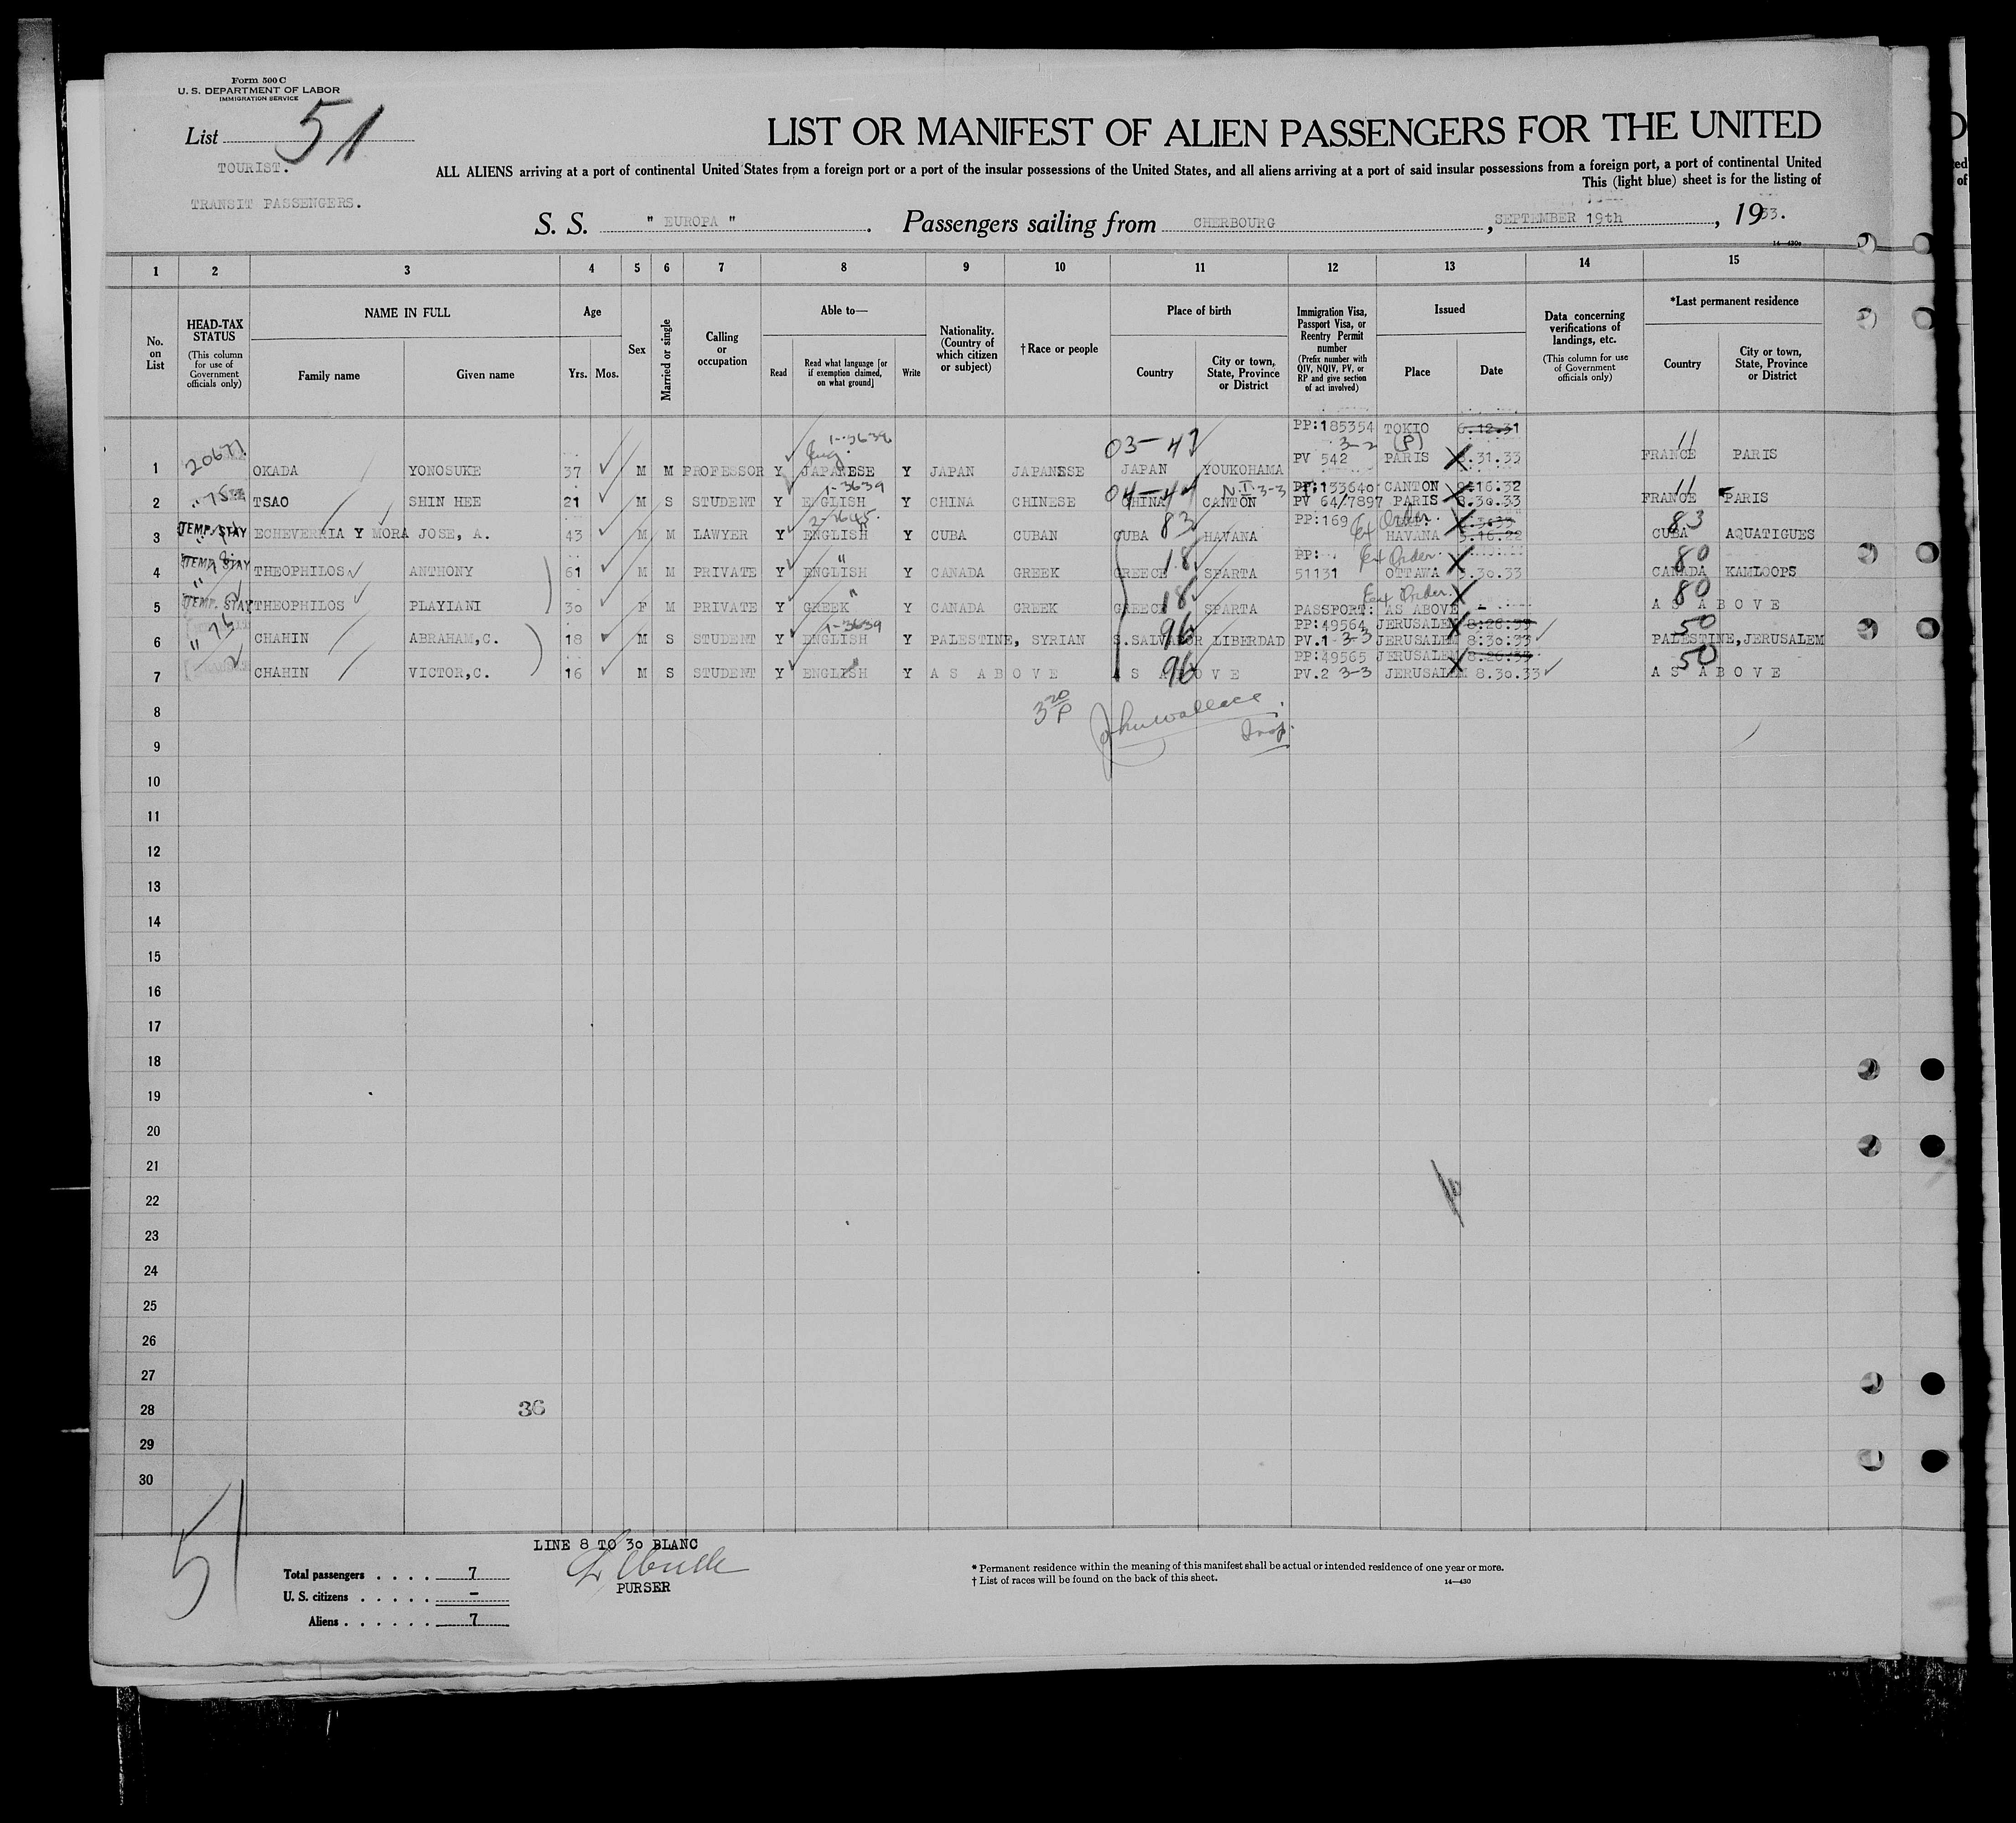 Form 500 C
U. S. DEPARTMENT OF LABOR
IMMIGRATION SERVICE
List 51
TOURIST.
TRANSIT PASSENGERS.
LIST OR MANIFEST OF ALIEN PASSENGERS FOR THE UNITED
ALL ALIENS arriving at a port of continental United States from a foreign port or a port of the insular possessions of the United States, and all aliens arriving at a port of said insular possessions from a foreign port, a port of continental United
This (light blue) sheet is for the listing of
S. S. " EUROPA ". Passengers sailing from CHERBOURG, SEPTEMBER 19th, 1933.
14—430c
1 2 3 4 5 6 7 8 9 10 11 12 13 14 15
No. on List
HEAD-TAX STATUS
(This column for use of Government officials only)
NAME IN FULL
Family name
Given name
Age
Yrs. Mos.
Sex
Married or single
Calling or occupation
Able to—
Read
Read what language [or if exemption claimed, on what ground]
Write
Nationality. (Country of which citizen or subject)
†Race or people
Place of birth
Country
City or town, State, Province or District
Immigration Visa, Passport Visa, or Reentry Permit number
(Prefix number with QIV, NQIV, PV, or RP and give section of act involved)
Issued
Place
Date
Data concerning verifications of landings, etc.
(This column for use of Government officials only)
*Last permanent residence
Country
City or town, State, Province or District
1-3639 03-47 PP:185354 TOKIO 6.12.31 11
Eng. 3-2 (P)
1 OKADA YONOSUKE 37 M M PROFESSOR Y JAPANESE Y JAPAN JAPANESE JAPAN YOUKOHAMA PV 542 PARIS 8.31.33 FRANCE PARIS
1-3639 04-44 N.I. 3-3 PP:133640 CANTON 9.16.32 11
2 TSAO SHIN HEE 21 M S STUDENT Y ENGLISH Y CHINA CHINESE CHINA CANTON PV 64/7897 PARIS 8.30.33 FRANCE PARIS
TEMP. STAY 2-3645. 83 PP:169 Ex Order. 83
3 ECHEVERRIA Y MORA JOSE, A. 43 M M LAWYER Y ENGLISH Y CUBA CUBAN CUBA HAVANA HAVANA CUBA AQUATIGUES
TEMP. STAY " 18 PP: Ex Order. 80
4 THEOPHILOS ANTHONY 61 M M PRIVATE Y ENGLISH Y CANADA GREEK GREECE SPARTA 51131 OTTAWA 3.30.33 CANADA KAMLOOPS
TEMP. STAY " 18 Ex Order. 80
5 THEOPHILOS PLAYIANI 30 F M PRIVATE Y GREEK Y CANADA GREEK GREECE SPARTA PASSPORT: AS ABOVE AS ABOVE
1-3639 96 PP:49564 JERUSALEM 8.26.33 50
6 CHAHIN ABRAHAM,C. 18 M S STUDENT Y ENGLISH Y PALESTINE, SYRIAN S.SALVADOR LIBERDAD PV.1 3-3 JERUSALEM 8.30.33 PALESTINE, JERUSALEM
" 96 PP:49565 JERUSALEM 8.26.33 50
7 CHAHIN VICTOR,C. 16 M S STUDENT Y ENGLISH Y AS ABOVE AS ABOVE PV.2 3-3 JERUSALEM 8.30.33 AS ABOVE
8 3 20 P John Wallace
9 Insp.
10
11
12
13
14
15
16
17
18
19
20
21
22
23
24
25
26
27
28 36
29
30
51
LINE 8 TO 30 BLANC
PURSER
Total passengers . . . . 7
U. S. citizens . . . . . –
Aliens . . . . . . 7
* Permanent residence within the meaning of this manifest shall be actual or intended residence of one year or more.
† List of races will be found on the back of this sheet.
14—430